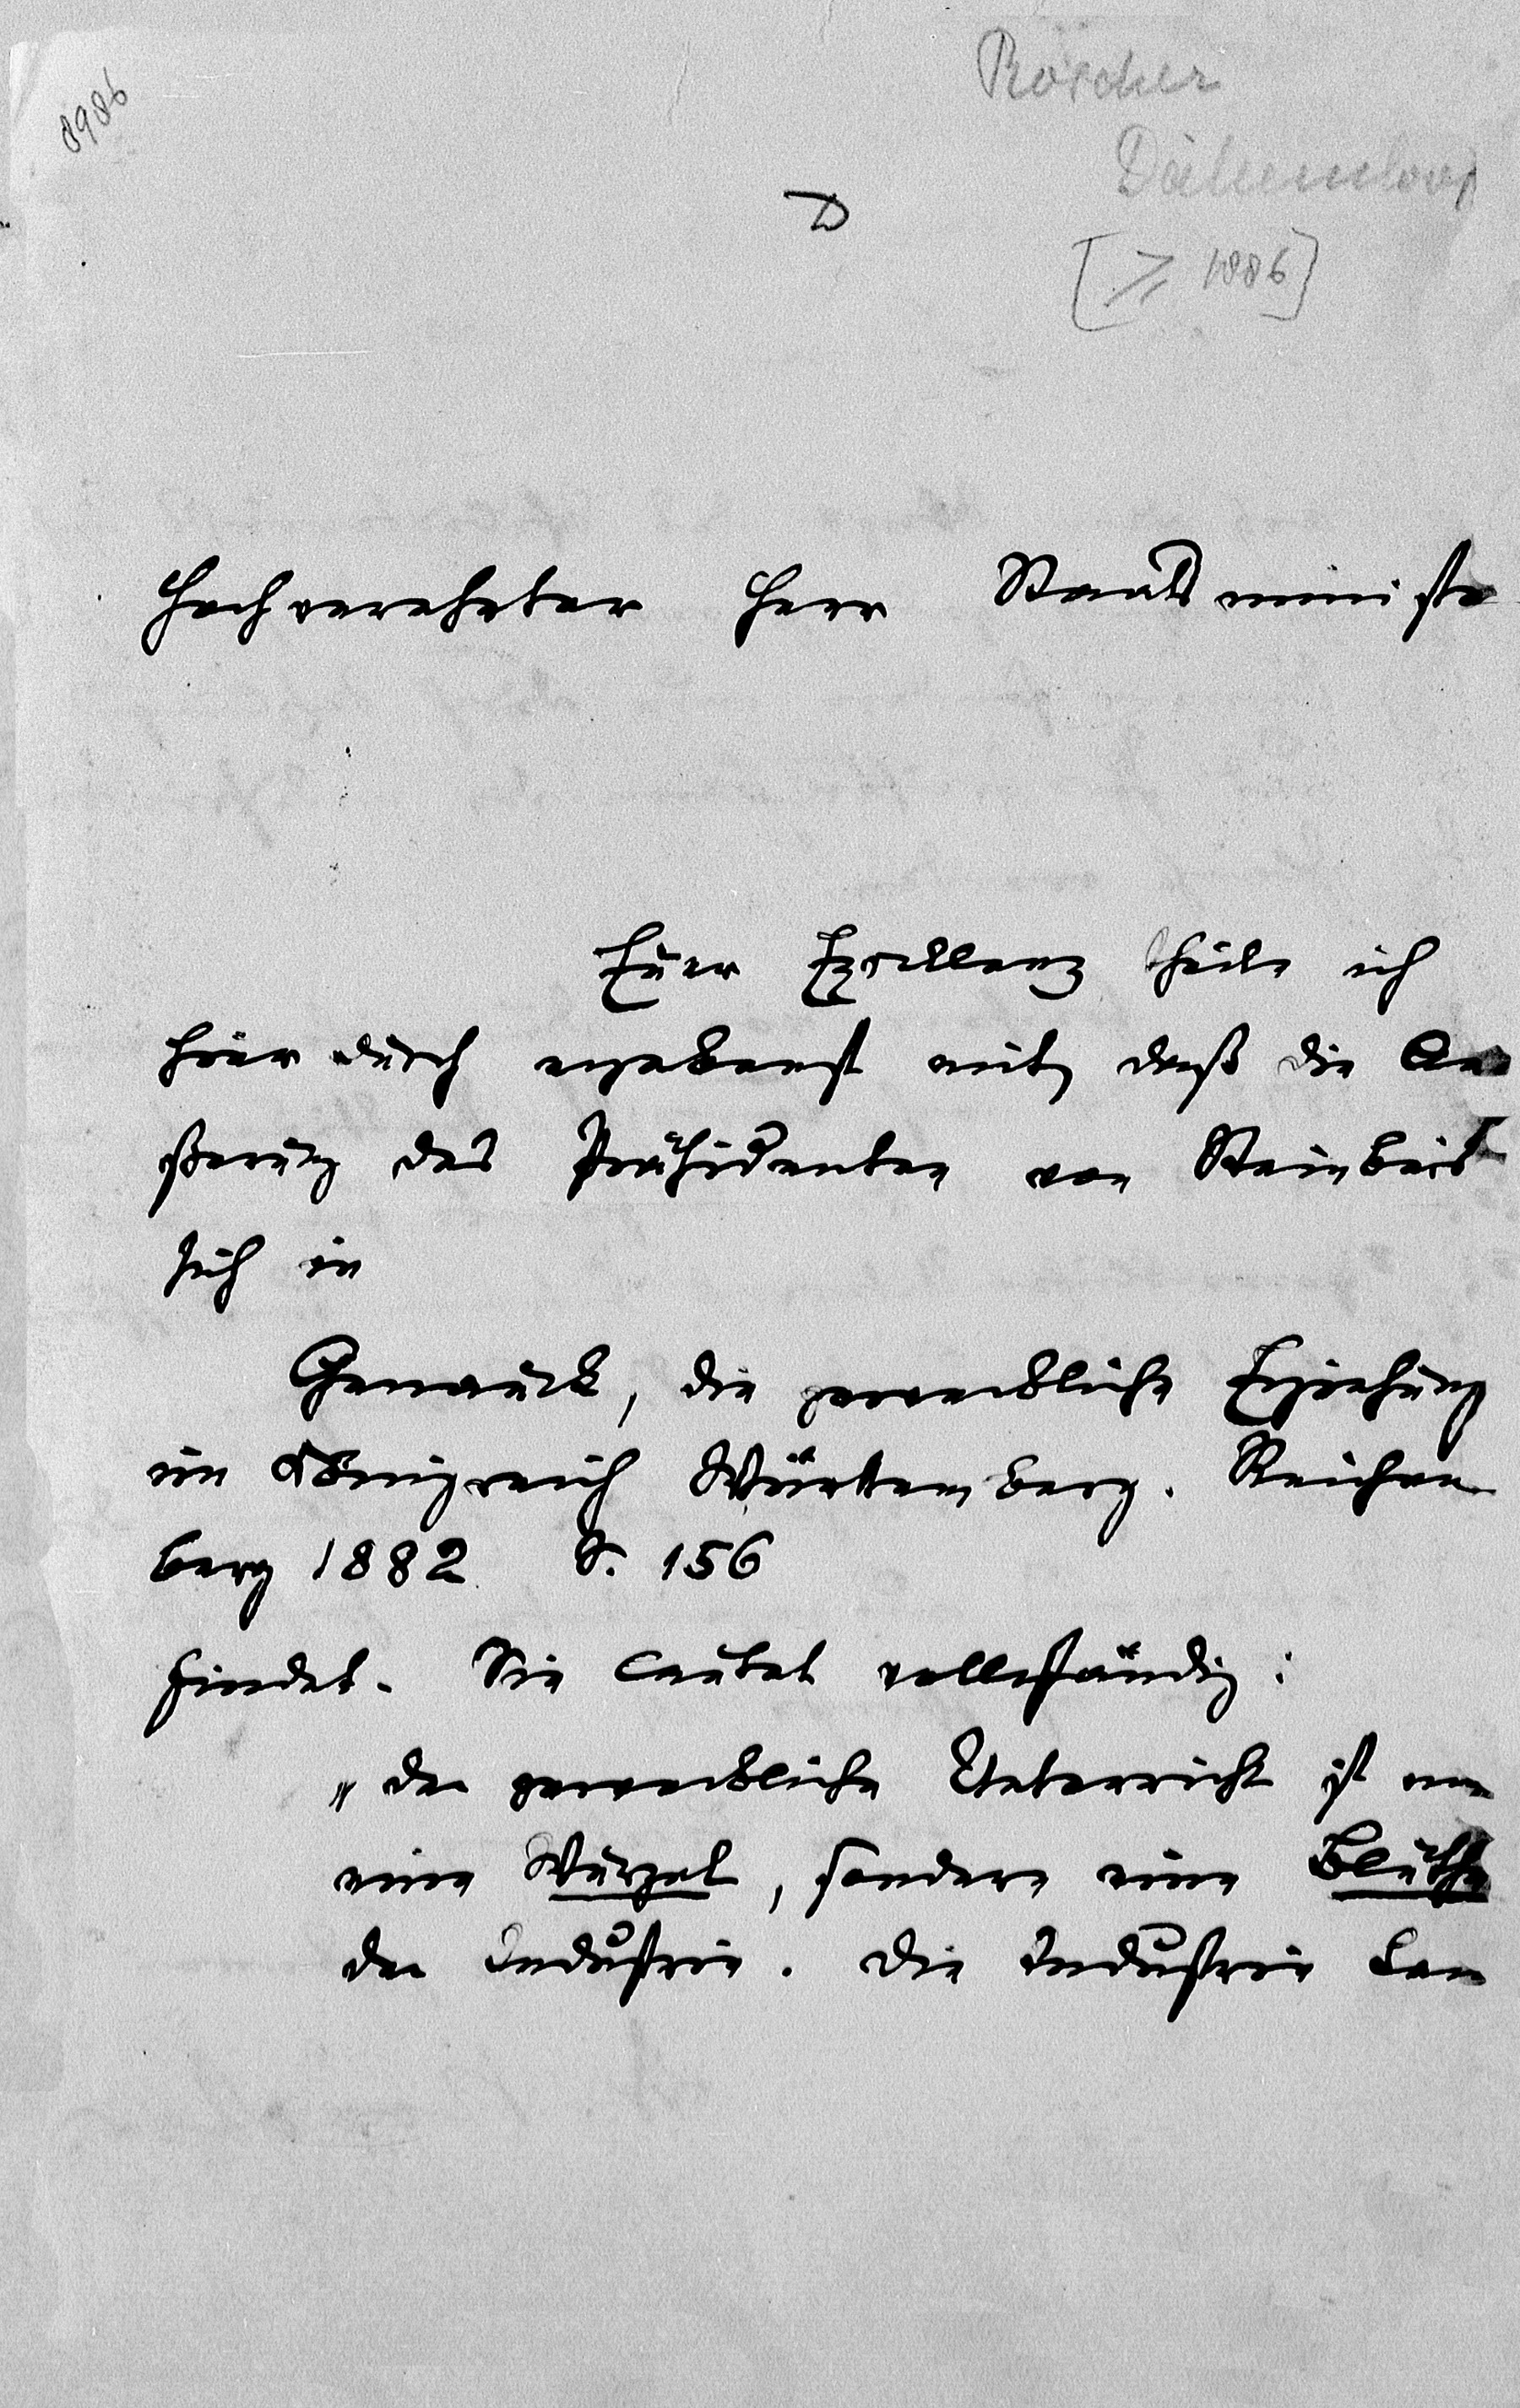 8986
Roscher
[≥ 1886]
D
Hochverehrter Herr Staatsministe
Euer Exzellenz theile ich
hierdurch ergebenst mit, daß die Äu
ßerung des Präsidenten von Steinbeis
sich in
Genauck, die gewerbliche Erziehung
im Königreich Württemberg. Reichen
berg 1882 S. 156
findet. Sie lautet vollständig:
„der gewerbliche Unterricht ist
eine Wurzel, sondern eine Blüthe
der Industrie. Die Industrie kan